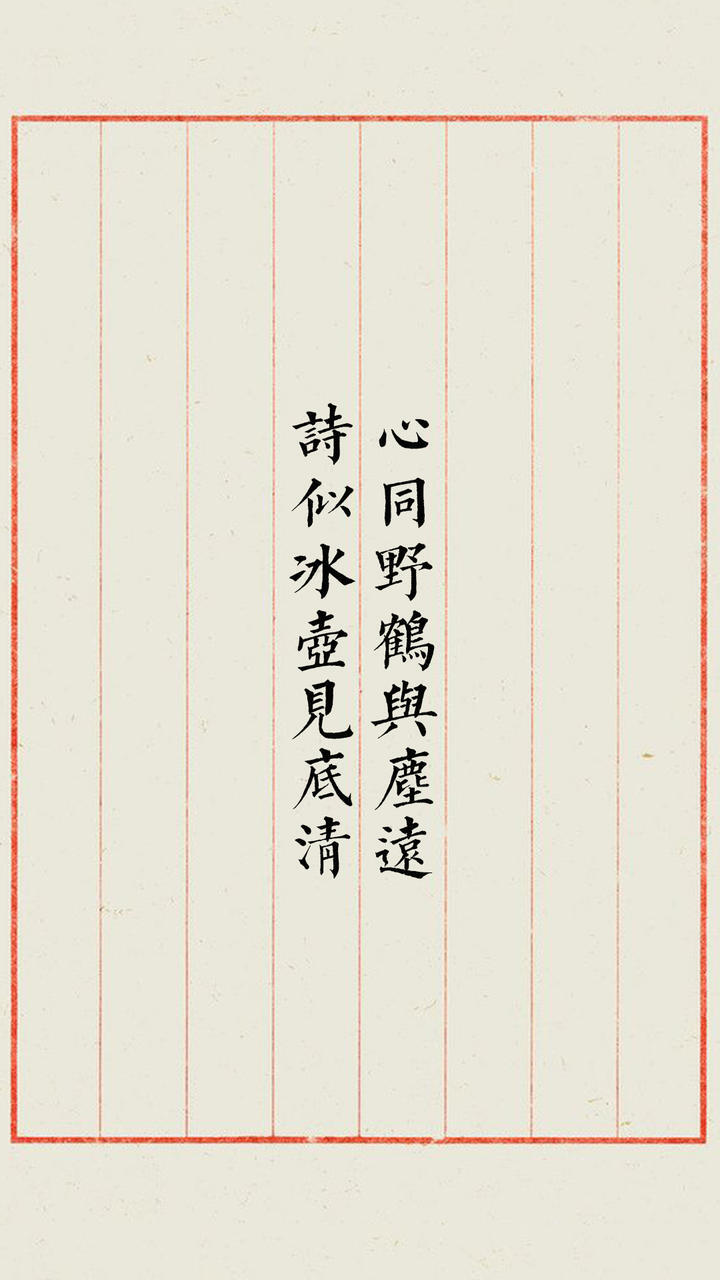 心同野鶴與塵遠
詩似冰壺見底清